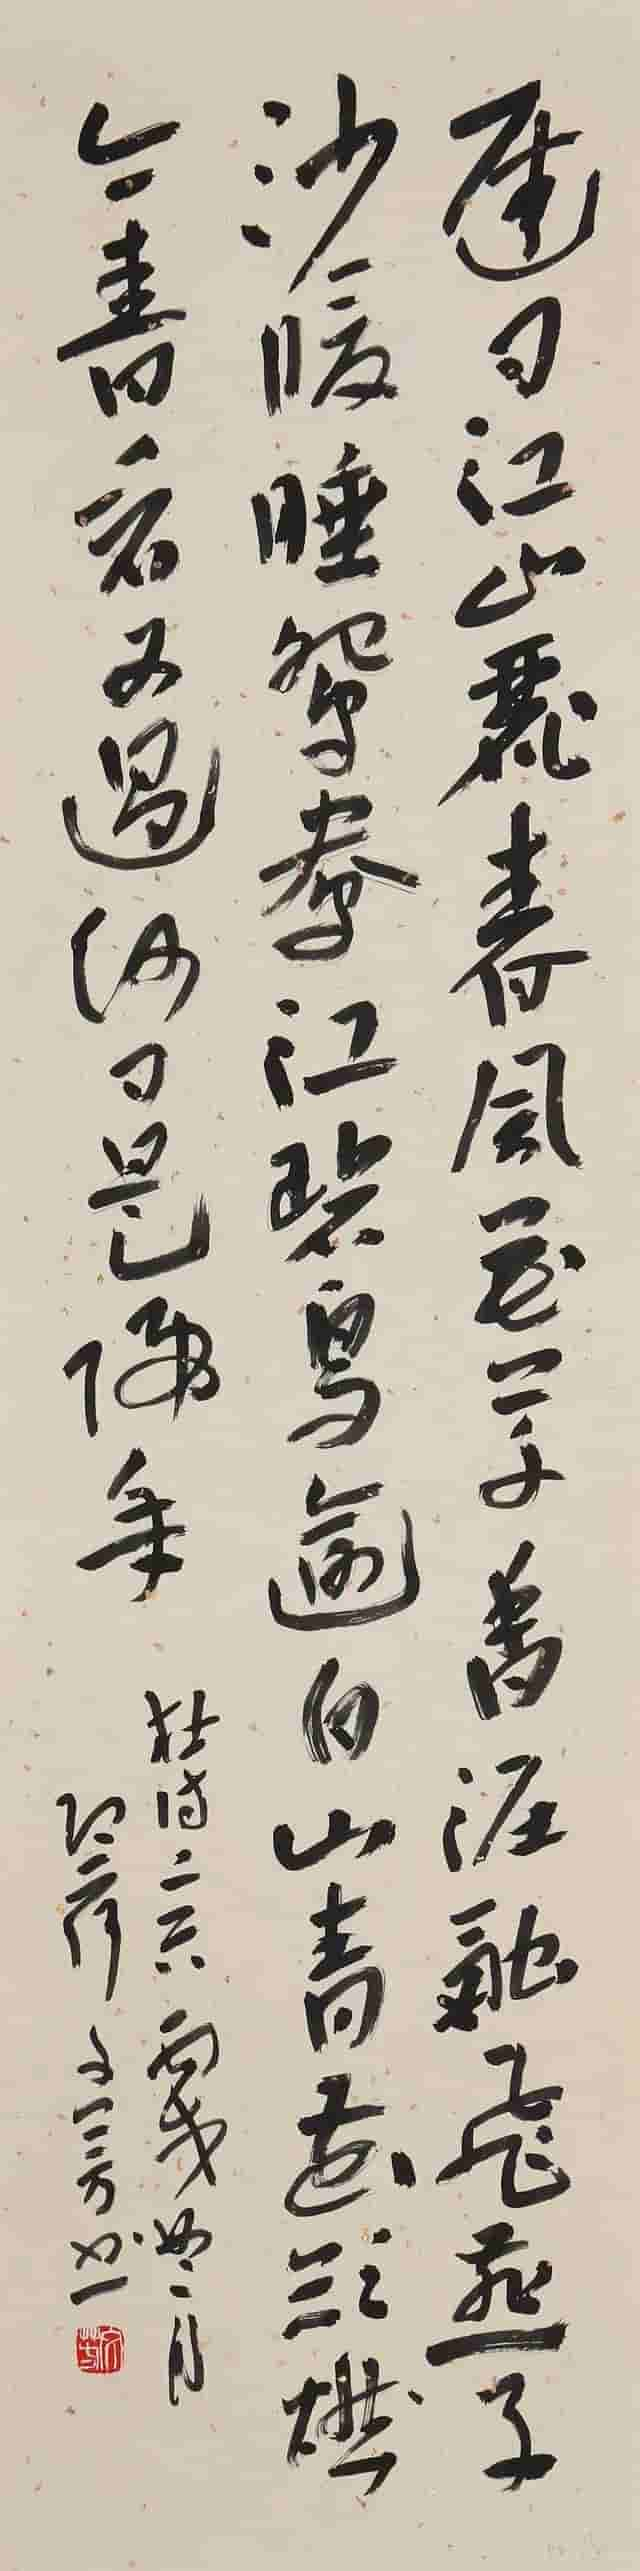 遲日江山麗春風花草香泥融飛燕子
沙暖睡鴛鴦江碧鳥逾白山青花欲燃
今春看又過何日是歸年
杜詩二首丙戌月
文芳書